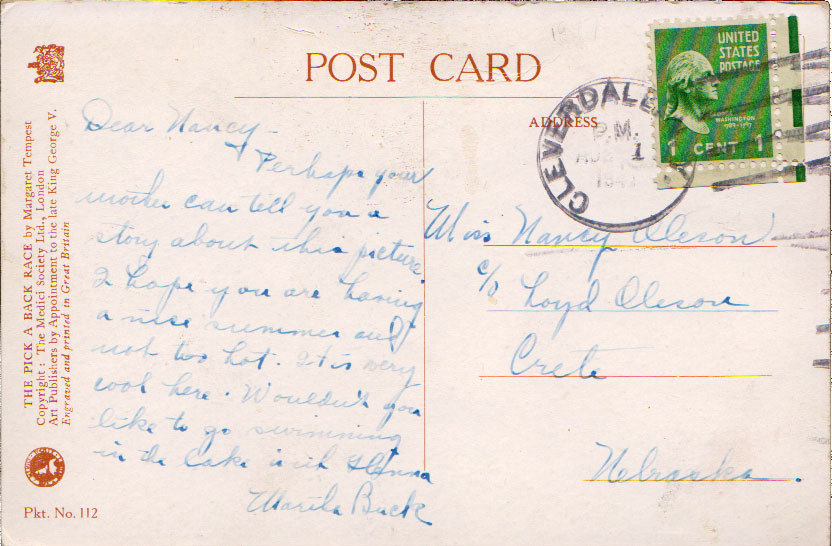 POST CARD
ADDRESS
UNITED
STATES
POSTAGE
WASHINGTON
1789-1797
1 CENT 1
CLEVERDALE
P.M.
1
Dear Nancy -
Perhaps your
mother can tell you a
story about this picture.
I hope you are having
a nice summer and
not too hot. It is very
cool here. Wouldn't you
like to go swimming
in the lake with Glenna
Marila Buck
Miss Nancy Oleson
c/o Loyd Oleson
Crete
Nebraska.
THE PICK A BACK RACE by Margaret Tempest
Copyright: The Medici Society Ltd., London
Art Publishers by Appointment to the late King George V.
Engraved and printed in Great Britain
Pkt. No. 112